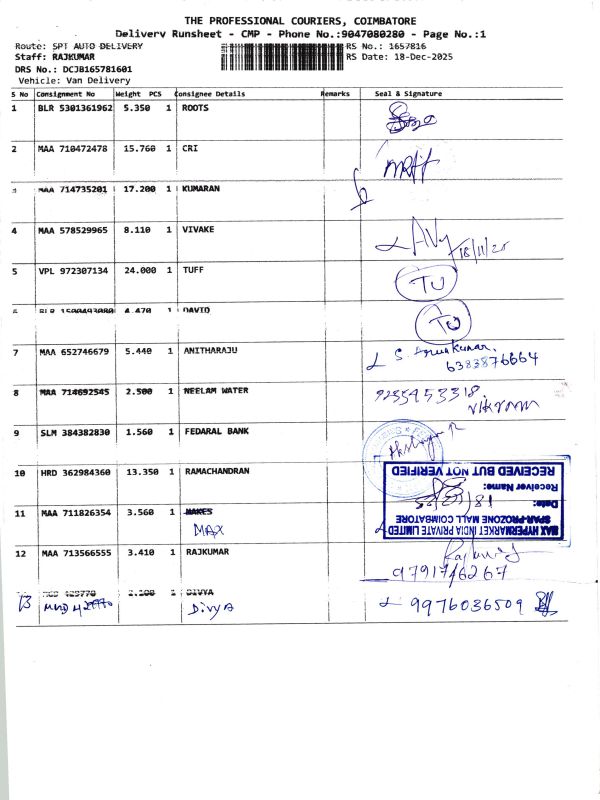 THE PROFESSIONAL COURIERS, COIMBATORE
Delivery Runsheet - CMP - Phone No.:9047080280 - Page No.:1
Route: SPT AUTO DELIVERY
RS No.: 1657816
Staff: RAJKUMAR
RS Date: 18-Dec-2025
DRS No.: DCJB165781601
Vehicle: Van Delivery
S No Consignment No Weight PCS Consignee Details Remarks Seal & Signature
1 BLR 5301361962 5.350 1 ROOTS
2 MAA 710472478 15.760 1 CRI
3 MAA 714735201 17.200 1 KUMARAN
4 MAA 578529965 8.110 1 VIVAKE
18/11/25
5 VPL 972307134 24.000 1 TUFF
TU
6 BLR 1500493080 4.470 1 DAVID
TU
7 MAA 652746679 5.440 1 ANITHARAJU
6383876664
8 MAA 714692545 2.500 1 NEELAM WATER
9235953318
Vikram
9 SLM 384382830 1.560 1 FEDARAL BANK
10 HRD 362984360 13.350 1 RAMACHANDRAN
MAX HYPERMARKET INDIA PRIVATE LIMITED
SPAR-PROZONE MALL COIMBATORE
Date:
Receiver Name:
RECEIVED BUT NOT VERIFIED
11 MAA 711826354 3.560 1 MAKES
MAX
12 MAA 713566555 3.410 1 RAJKUMAR
Rajkumar
9791776267
2.100 1 DIVYA
13 Divya 9976036509